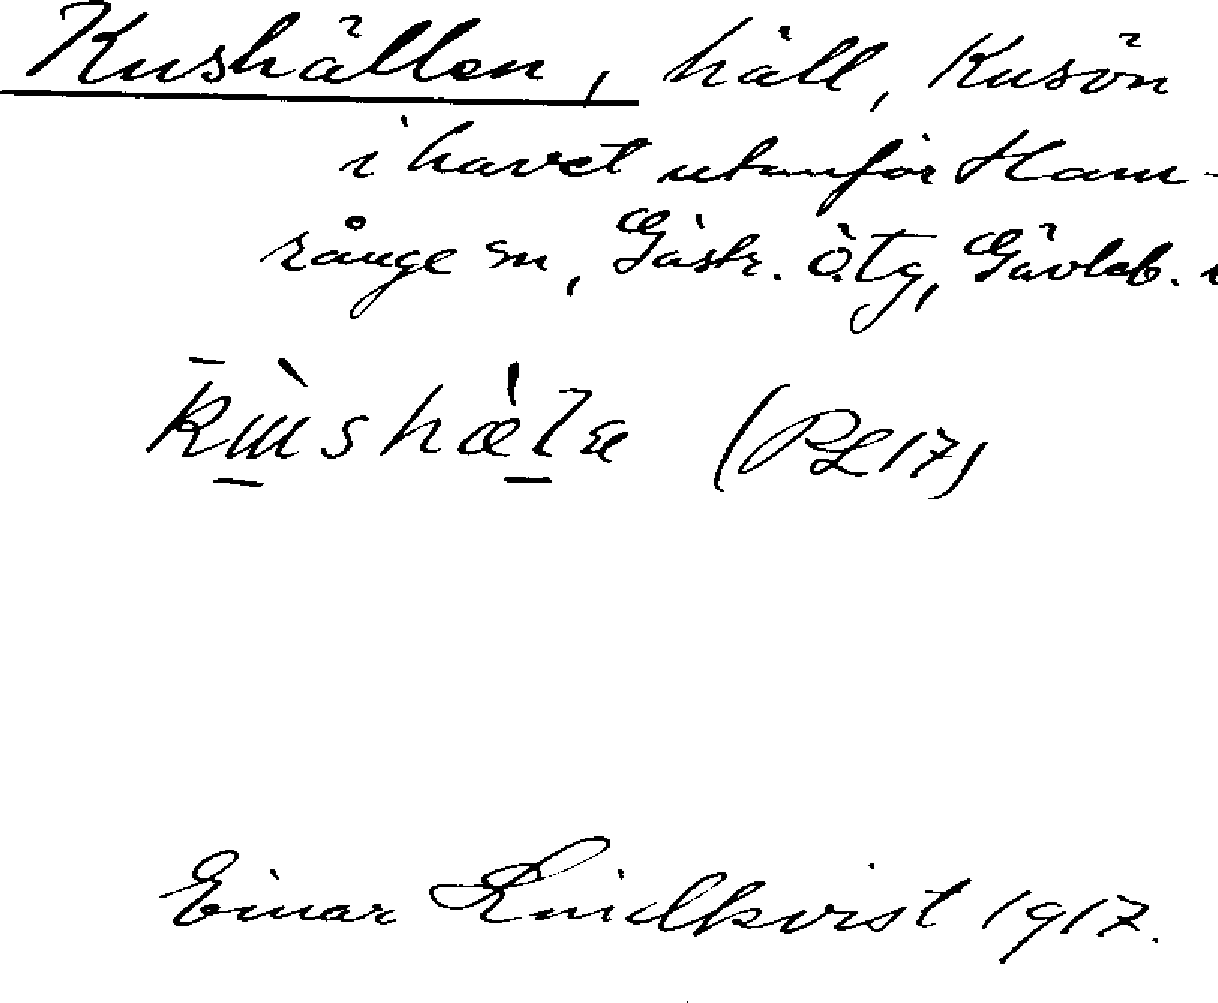 Kushällen, häll, Kusön
i havet utanför Ham-
rånge sn, Gästr. ötg, Gävleb.
(PL 17)
Einar Lindkvist 1917.